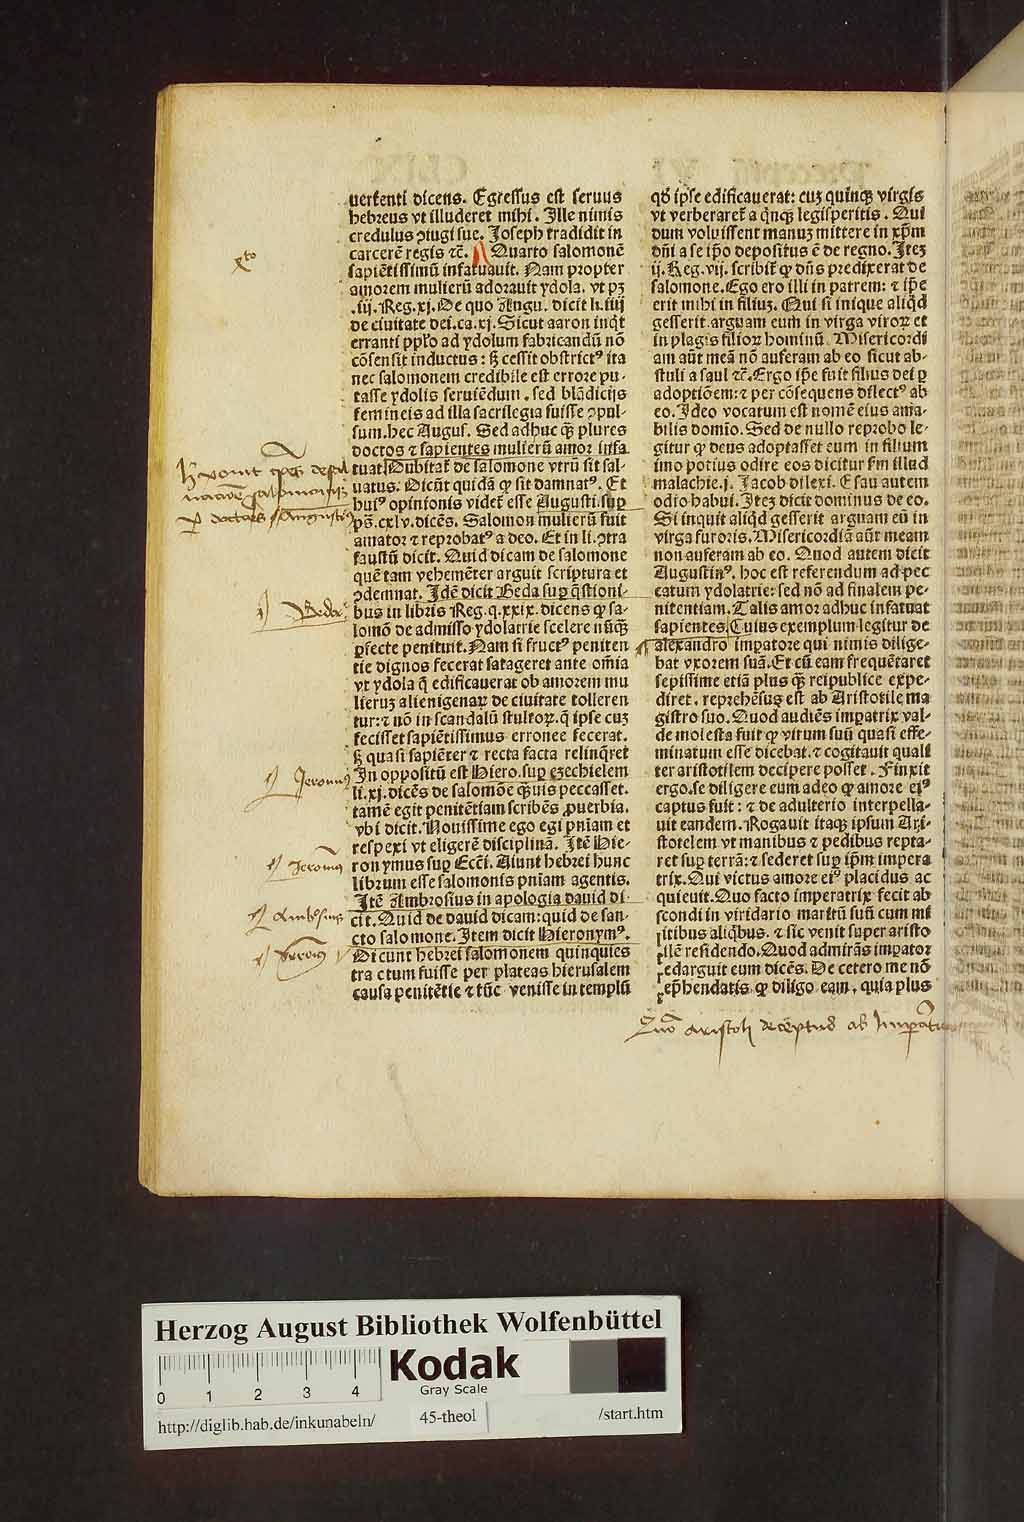 uertenti dicens. Egressus est seruus
hebreus vt illuderet mihi. Ille nimis
credulus ꝯiugi sue. Joseph tradidit in
carcerē regis ⁊c̄. Quarto salomonē
sapiētissimū infatuauit. Nam propter
amorem mulierū adorauit ydola. vt pꝫ
.iij. Reg. xj. De quo Augu. dicit li. iiij
de ciuitate dei. ca. xj. Sicut aaron inq̇t
erranti ppl̓o ad ydolum fabricandū nō
cōsensit inductus: sꝫ cessit obstrictꝰ ita
nec salomonem credibile est errore pu-
tasse ydolis seruiēdum. sed blādicijs
femineis ad illa sacrilegia fuisse ꝯpul-
sum. hec Augus. Sed adhuc qꝫ plures
doctos ⁊ sapientes mulierū amor infa
tuat. Dubitat̄ de salomone vtrū sit sal-
uatus. Dicūt quidā ꝙ sit damnatꝰ. Et
huiꝰ opinionis videt̄ esse Augusti. suꝑ
pš. cxlv. dicēs. Salomon mulierū fuit
amator ⁊ reprobatꝰ a deo. Et in li. ꝯtra
faustū dicit. Quid dicam de salomone
quē tam vehemēter arguit scriptura et
ꝯdemnat. Idē dicit Beda suꝑ q̄stioni-
bus in libris Reg. q. xxix. dicens ꝙ sa-
lomō de admisso ydolatrie scelere nūqꝫ
ꝑfecte penituit. Nam si fructꝰ peniten
tie dignos fecerat satageret ante om̄ia
vt ydola q̄ edificauerat ob amorem mu
lieruꝫ alienigenaꝝ de ciuitate tolleren
tur: ⁊ nō in scandalū stultoꝝ. q̄ ipse cuꝫ
fecisset sapiētissimus erronee fecerat.
sꝫ quasi sapiēter ⁊ recta facta relinq̄ret
In oppositū est Hiero. suꝑ ezechielem
li. xj. dicēs de salomōe qꝫuis peccasset.
tamē egit penitētiam scribēs ꝓuerbia.
vbi dicit. Nouissime ego egi pniam et
respexi vt eligerē disciplinā. Itē Hie-
ronymus suꝑ Ecci. Aiunt hebrei hunc
librum esse salomonis pniam agentis.
Itē Ambrosius in apologia dauid di-
cit. Quid de dauid dicam: quid de san-
cto salomone. Item dicit Hieronymꝰ.
Dicunt hebrei salomonem quinquies
tractum fuisse per plateas hierusalem
causa penitētie ⁊ tūc venisse in templū
qd̓ ipse edificauerat: cuꝫ quinqꝫ virgis
vt verberaret̄ a q̇nqꝫ legisperitis. Qui
dum voluissent manuꝫ mittere in xp̄m
dn̄i a se ip̄o depositus ē de regno. Iteꝫ
ij. Reg. vij. scribit̄ ꝙ dn̄s predixerat de
salomone. Ego ero illi in patrem: ⁊ ip̄e
erit mihi in filiuꝫ. Qui si inique aliq̇d
gesserit arguam eum in virga viroꝝ et
in plagis filioꝝ hominū. Misericordi
am aūt meā nō auferam ab eo sicut ab-
stuli a saul ⁊c̄. Ergo ip̄e fuit filius dei ꝑ
adoptiōem: ⁊ per cōsequens dilectꝰ ab
eo. Ideo vocatum est nomē eius ama-
bilis domīo. Sed de nullo reprobo le-
gitur ꝙ deus adoptasset eum in filium
imo potius odire eos dicitur fm illud
malachie. j. Jacob dilexi. Esau autem
odio habui. Iteꝫ dicit dominus de eo.
Si inquit aliq̇d gesserit arguam eū in
virga furoris. Misericordiā aūt meam
non auferam ab eo. Quod autem dicit
Augustinꝰ. hoc est referendum ad pec
catum ydolatrie: sed nō ad finalem pe-
nitentiam. Talis amor adhuc infatuat
sapientes. Cuius exemplum legitur de
alexandro impatore qui nimis dilige-
bat vxorem suā. Et cū eam frequētaret
sepissime etiā plus qꝫ reipublice expe-
diret. reprehēsus est ab Aristotile ma
gistro suo. Quod audiēs impatrix val-
de molesta fuit ꝙ virum suū quasi effe-
minatum esse dicebat. ⁊ cogitauit quali
ter aristotilem decipere posset. Finxit
ergo. se diligere eum adeo ꝙ amore eiꝰ
captus fuit: ⁊ de adulterio interpella-
uit eandem. Rogauit itaqꝫ ipsum Ari-
stotelem vt manibus ⁊ pedibus repta-
ret suꝑ terrā: ⁊ sederet suꝑ ip̄m impera
trix. Qui victus amore eiꝰ placidus ac
quieuit. Quo facto imperatrix fecit ab
scondi in viridario maritū suū cum mi
litibus aliq̇bus. ⁊ sic venit super aristo
tilē residendo. Quod admirās impator
redarguit eum dicēs. De cetero me nō
rep̄hendatis ꝙ diligo eam, quia plus
xto
Beda
Jeronimꝰ
Jeronimꝰ
Ambrosius
Quō aristoti deceptus ab Imperatri
Herzog August Bibliothek Wolfenbüttel
0 1 2 3 4
Kodak
Gray Scale
http://diglib.hab.de/inkunabeln/ 45-theol /start.htm